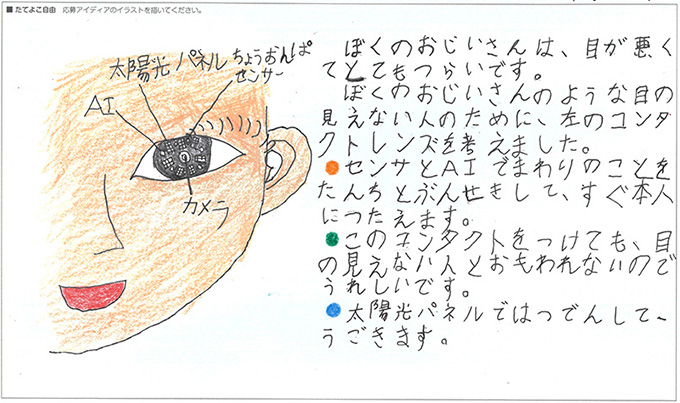 ■ たてよこ自由　応募アイディアのイラストを描いてください。
太陽光パネル
ちょうおんぱ
センサー
AI
カメラ
ぼくのおじいさんは、目が悪く
てとてもつらいです。
ぼくのおじいさんのような目の
見えない人のために、左のコンタ
クトレンズを考えました。
センサとAIでまわりのことを
たんちとぶんせきして、すぐ本人
につたえます。
このコンタクトをつけても、目
の見えない人とおもわれないので
うれしいです。
太陽光パネルではつでんして、
うごきます。